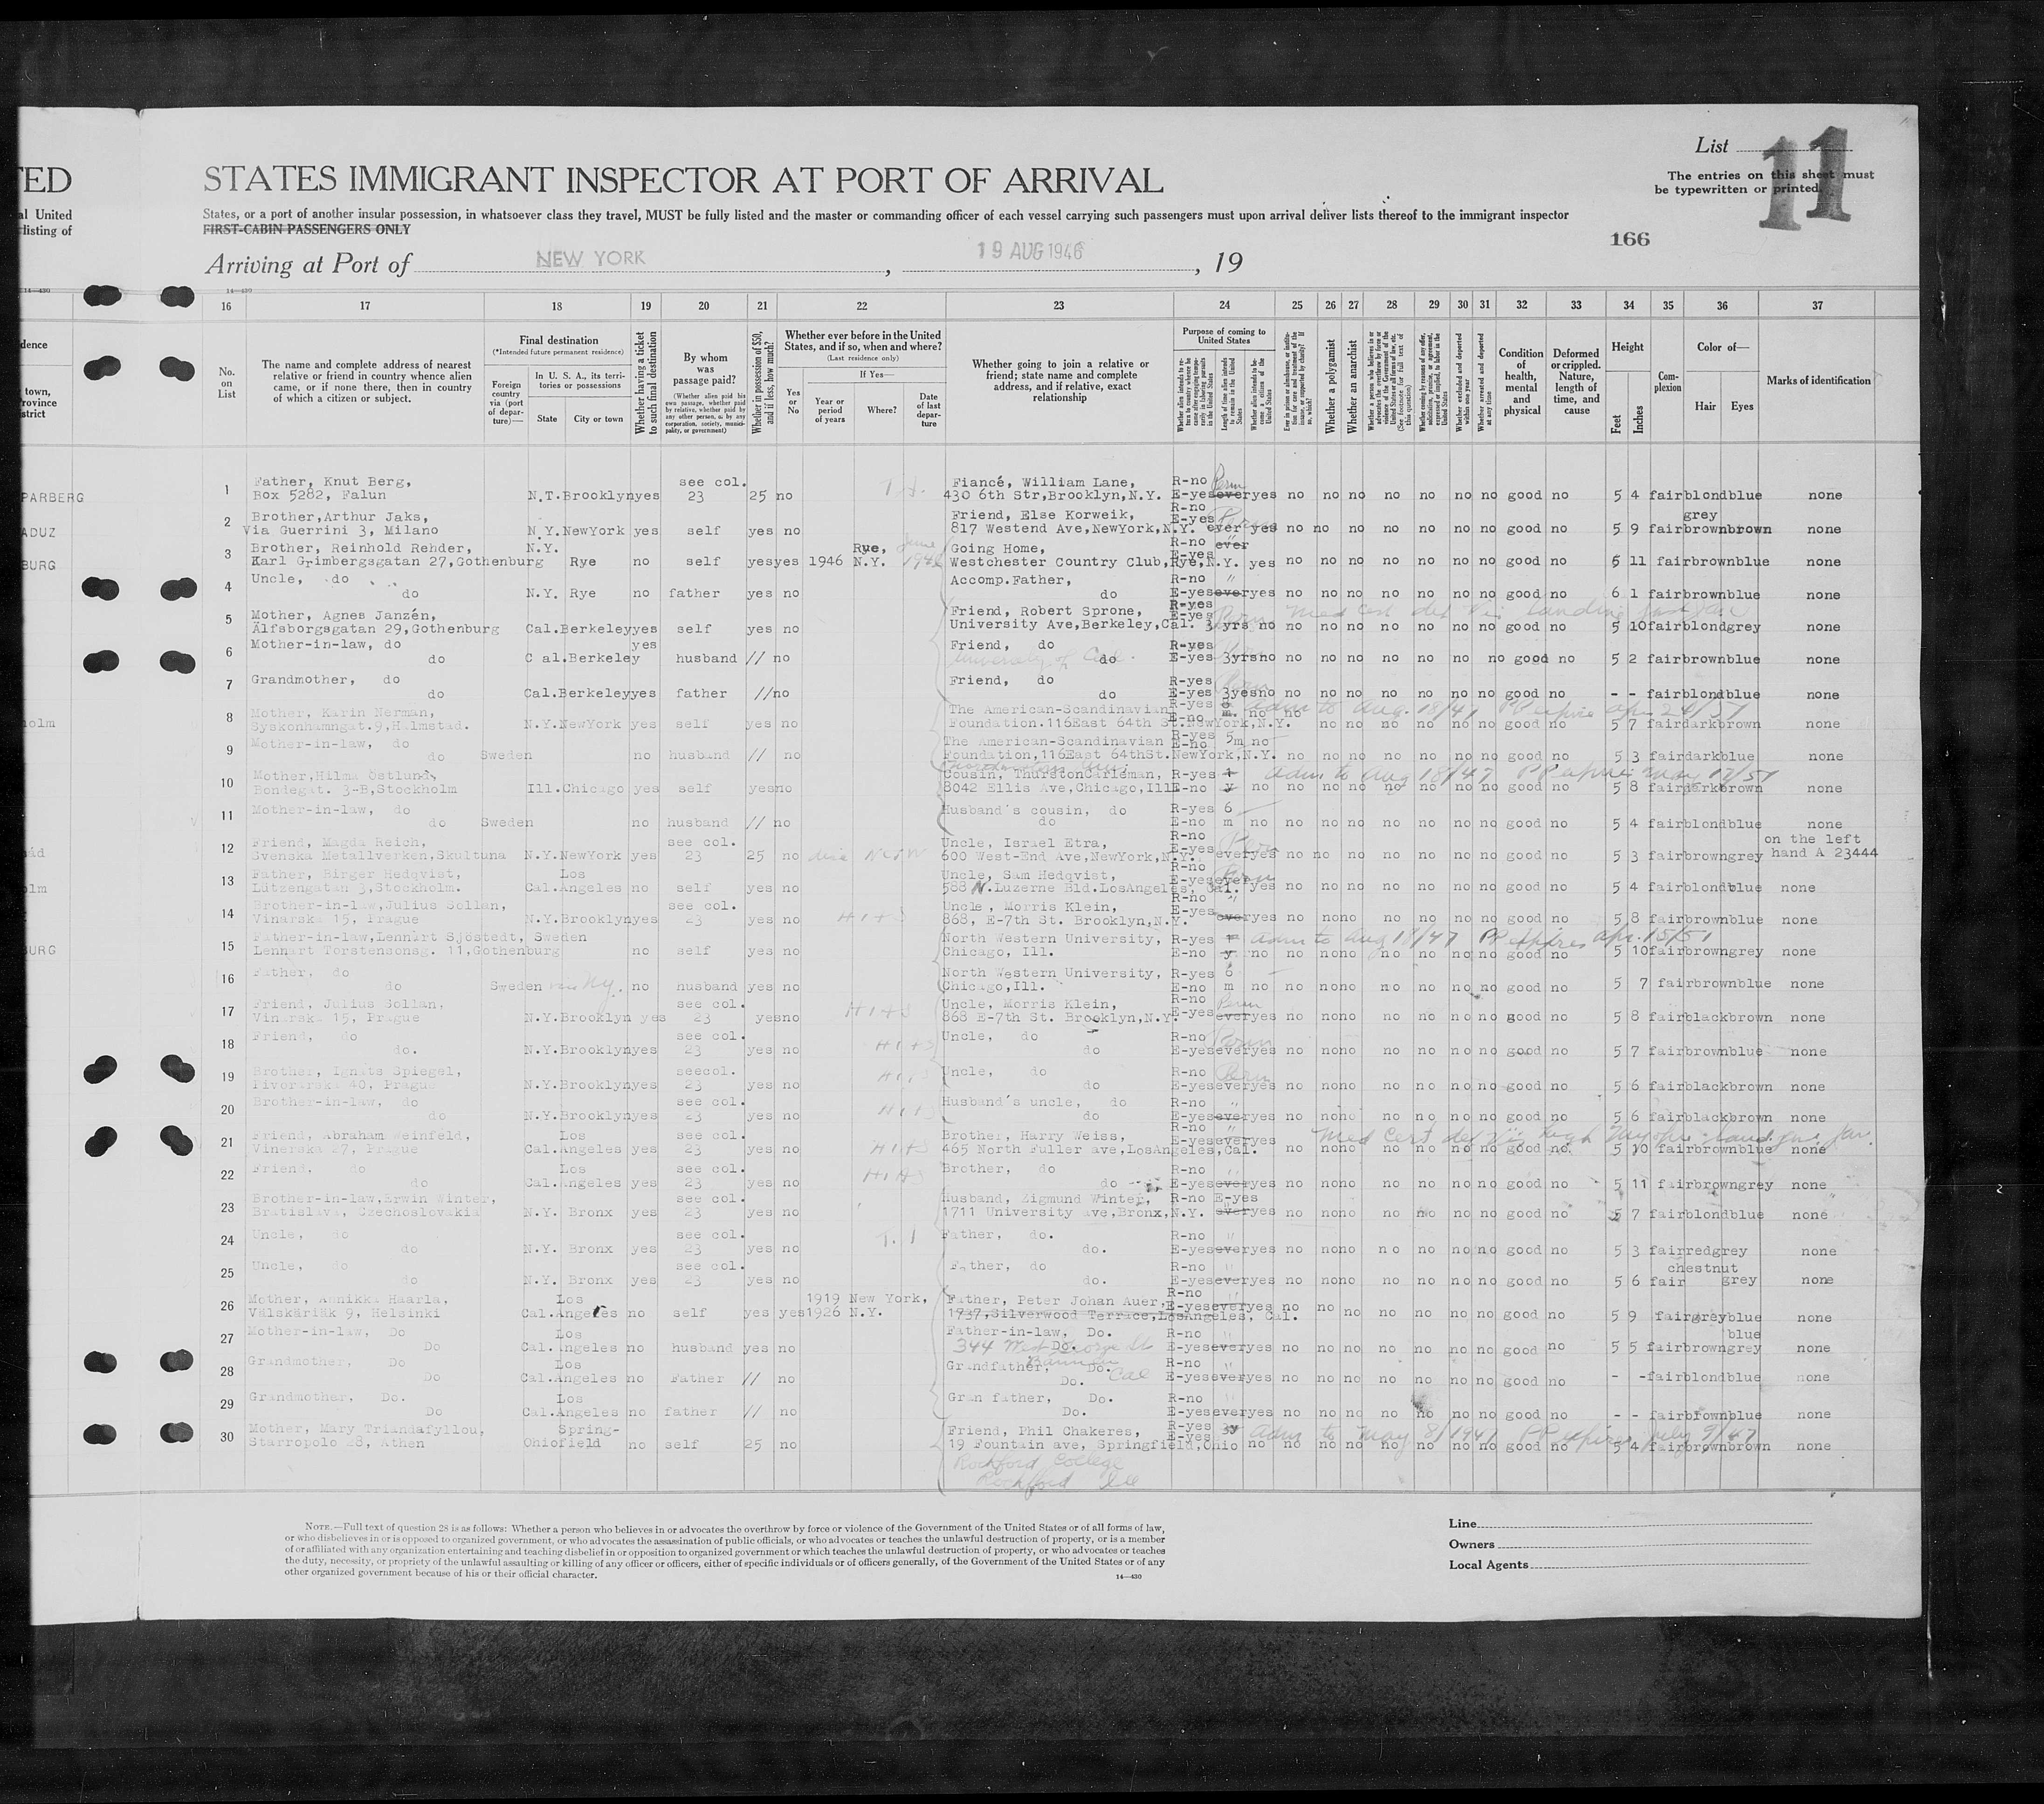 List 11
TED
STATES IMMIGRANT INSPECTOR AT PORT OF ARRIVAL
The entries on this sheet must
be typewritten or printed.
al United
listing of
States, or a port of another insular possession, in whatsoever class they travel, MUST be fully listed and the master or commanding officer of each vessel carrying such passengers must upon arrival deliver lists thereof to the immigrant inspector
FIRST-CABIN PASSENGERS ONLY
166
Arriving at Port of NEW YORK, 19 AUG 1946, 19
14—430
16 17 18 19 20 21 22 23 24 25 26 27 28 29 30 31 32 33 34 35 36 37
No. on List
The name and complete address of nearest relative or friend in country whence alien came, or if none there, then in country of which a citizen or subject.
Final destination
(*Intended future permanent residence)
Foreign country via (port of departure)—
In U. S. A., its territories or possessions
State City or town
Whether having a ticket to such final destination
By whom was passage paid?
(Whether alien paid his own passage, whether paid by relative, whether paid by any other person, or by any corporation, society, municipality, or government)
Whether in possession of $50, and if less, how much?
Whether ever before in the United States, and if so, when and where?
(Last residence only)
Yes or No
If Yes—
Year or period of years Where? Date of last departure
Whether going to join a relative or friend; state name and complete address, and if relative, exact relationship
Purpose of coming to United States
Whether a polygamist
Whether an anarchist
Condition of health, mental and physical
Deformed or crippled. Nature, length of time, and cause
Height
Feet Inches
Complexion
Color of—
Hair Eyes
Marks of identification
1 Father, Knut Berg, see col. Fiancé, William Lane, R-no Perm
PARBERG Box 5282, Falun N.T. Brooklyn yes 23 25 no 430 6th Str,Brooklyn,N.Y. E-yes ever yes no no no no no no no good no 5 4 fair blond blue none
2 Brother,Arthur Jaks, Friend, Else Korweik, R-no E-yes grey
ADUZ Via Guerrini 3, Milano N.Y. NewYork yes self yes no 817 Westend Ave,NewYork,N.Y. ever yes no no no no no no no good no 5 9 fair brown brown none
3 Brother, Reinhold Rehder, N.Y. Rye, June Going Home, R-no ever
BURG Karl Grimbergsgatan 27,Gothenburg Rye no self yes yes 1946 N.Y. Westchester Country Club,Rye,N.Y. E-yes yes no no no no no no no good no 5 11 fair brown blue none
4 Uncle, do Accomp.Father, R-no "
do N.Y. Rye no father yes no do E-yes ever yes no no no no no no no good no 6 1 fair brown blue none
5 Mother, Agnes Janzén, Friend, Robert Sprone, R-yes E-yes
Älfsborgsgatan 29,Gothenburg Cal. Berkeley yes self yes no University Ave,Berkeley,Cal. 3 yrs no no no no no no no no good no 5 10 fair blond grey none
6 Mother-in-law, do yes Friend, do R-yes
do Cal. Berkeley husband // no do E-yes 3yrs no no no no no no no no good no 5 2 fair brown blue none
7 Grandmother, do Friend, do R-yes
do Cal. Berkeley yes father // no do E-yes 3yes no no no no no no no no good no - - fair blond blue none
8 Mother, Karin Nerman, The American-Scandinavian R-yes adm to Aug. 18/47
olm Syskonhamngat.9,Halmstad. N.Y. NewYork yes self yes no Foundation.116East 64th St.NewYork,N.Y. E-no no no no no no no no good no 5 7 fair dark brown none
9 Mother-in-law, do The American-Scandinavian R-yes 5m no
do Sweden no husband // no Foundation,116East 64thSt.NewYork,N.Y. E-no no no no no no no no good no 5 3 fair dark blue none
10 Mother,Hilma Östlund, Cousin, ThurstonCarlsman, R-yes 1 adm to Aug 18/47 PP expire May 17/51
Bondegat. 3-B,Stockholm Ill. Chicago yes self yes no 8042 Ellis Ave,Chicago,Ill E-no y no no no no no no no no good no 5 8 fair dark brown none
11 Mother-in-law, do Husband's cousin, do R-yes 6
do Sweden no husband // no do E-no m no no no no no no no no good no 5 4 fair blond blue none
12 Friend, Magda Reich, see col. Uncle, Israel Etra, R-no E-yes on the left
Svenska Metallverken,Skultuna N.Y. NewYork yes 23 25 no 600 West-End Ave,NewYork,N.Y. ever yes no no no no no no no good no 5 3 fair brown grey hand A 23444
13 Father, Birger Hedqvist, Los Uncle, Sam Hedqvist, R-no E-yes ever
olm Lützengatan 3,Stockholm. Cal. Angeles no self yes no 588 N.Luzerne Bld.LosAngeles, Cal. yes no no no no no no no good no 5 4 fair blond blue none
14 Brother-in-law,Julius Sollan, see col. Uncle, Morris Klein, R-no "
Vinarska 15, Prague N.Y. Brooklyn yes 23 yes no 868, E-7th St. Brooklyn,N.Y. E-yes ever yes no no no no no no no good no 5 8 fair brown blue none
15 Father-in-law,Lennart Sjöstedt, Sweden North Western University, R-yes adm to Aug 18/47 PP expires Apr. 15/51
BURG Lennart Torstensonsg. 11,Gothenburg no self yes no Chicago, Ill. E-no y no no no no no no no no good no 5 10 fair brown grey none
16 Father, do North Western University, R-yes 6
do Sweden via Ny. no husband yes no Chicago,Ill. E-no m no no no no no no no no good no 5 7 fair brown blue none
17 Friend, Julius Sollan, see col. Uncle, Morris Klein, R-no Perm
Vinarska 15, Prague N.Y. Brooklyn yes 23 yes no 868 E-7th St. Brooklyn,N.Y. E-yes ever yes no no no no no no no good no 5 8 fair black brown none
18 Friend, do see col. Uncle, do R-no Perm
do. N.Y. Brooklyn yes 23 yes no do E-yes ever yes no no no no no no no good no 5 7 fair brown blue none
19 Brother, Ignats Spiegel, seecol. Uncle, do R-no Perm
Pivorarska 40, Prague N.Y. Brooklyn yes 23 yes no do E-yes ever yes no no no no no no no good no 5 6 fair black brown none
20 Brother-in-law, do see col. Husband's uncle, do R-no "
do N.Y. Brooklyn yes 23 yes no do E-yes ever yes no no no no no no no good no 5 6 fair black brown none
21 Friend, Abraham Weinfeld, Los see col. Brother, Harry Weiss, R-no " E-yes ever yes
Vinerska 27, Prague Cal. Angeles yes 23 yes no 465 North Fuller ave,LosAngeles,Cal. no no no no no no no good no 5 10 fair brown blue none
22 Friend. do Los see col. Brother, do R-no "
do Cal. Angeles yes 23 yes no do E-yes ever yes no no no no no no no good no 5 11 fair brown grey none
23 Brother-in-law,Erwin Winter, see col. Husband, Zigmund Winter, R-no E-yes
Bratislava, Czechoslovakia N.Y. Bronx yes 23 yes no 1711 University ave,Bronx,N.Y. ever yes no no no no no no no good no 5 7 fair blond blue none
24 Uncle, do see col. Father, do. R-no "
do N.Y. Bronx yes 23 yes no do. E-yes ever yes no no no no no no no good no 5 3 fair red grey none
25 Uncle, do see col. Father, do R-no " chestnut
do N.Y. Bronx yes 23 yes no do. E-yes ever yes no no no no no no no good no 5 6 fair grey none
26 Mother, Annikki Haarla, Los 1919 New York, Father, Peter Johan Auer, R-no "
Välskäriäk 9, Helsinki Cal. Angeles no self yes yes 1926 N.Y. 1737,Silverwood Terrace,LosAngeles, Cal. E-yes ever yes no no no no no no no good no 5 9 fair grey blue none
27 Mother-in-law, Do Los Father-in-law, Do. R-no " blue
Do Cal. Angeles no husband yes no 344 West George St Do. E-yes ever yes no no no no no no no good no 5 5 fair brown grey none
28 Grandmother, Do Los Grandfather, Do. R-no "
Do Cal. Angeles no Father // no Do. Cal E-yes ever yes no no no no no no no good no - - fair blond blue none
29 Grandmother, Do. Los Gran father, Do. R-no "
Do Cal. Angeles no father // no Do. E-yes ever yes no no no no no no no good no - - fair brown blue none
30 Mother, Mary Triandafyllou, Spring- Friend, Phil Chakeres, R-yes E-yes 3y Adm to May 8/1947 PP expires July 9/47
Starropolo 28, Athen Ohio field no self 25 no 19 Fountain ave, Springfield,Ohio no no no no no no no no good no 5 4 fair brown brown none
Rockford College
Rockford Ill
NOTE.—Full text of question 28 is as follows: Whether a person who believes in or advocates the overthrow by force or violence of the Government of the United States or of all forms of law,
or who disbelieves in or is opposed to organized government, or who advocates the assassination of public officials, or who advocates or teaches the unlawful destruction of property, or is a member
of or affiliated with any organization entertaining and teaching disbelief in or opposition to organized government or which teaches the unlawful destruction of property, or who advocates or teaches
the duty, necessity, or propriety of the unlawful assaulting or killing of any officer or officers, either of specific individuals or of officers generally, of the Government of the United States or of any
other organized government because of his or their official character.
14—430
Line
Owners
Local Agents